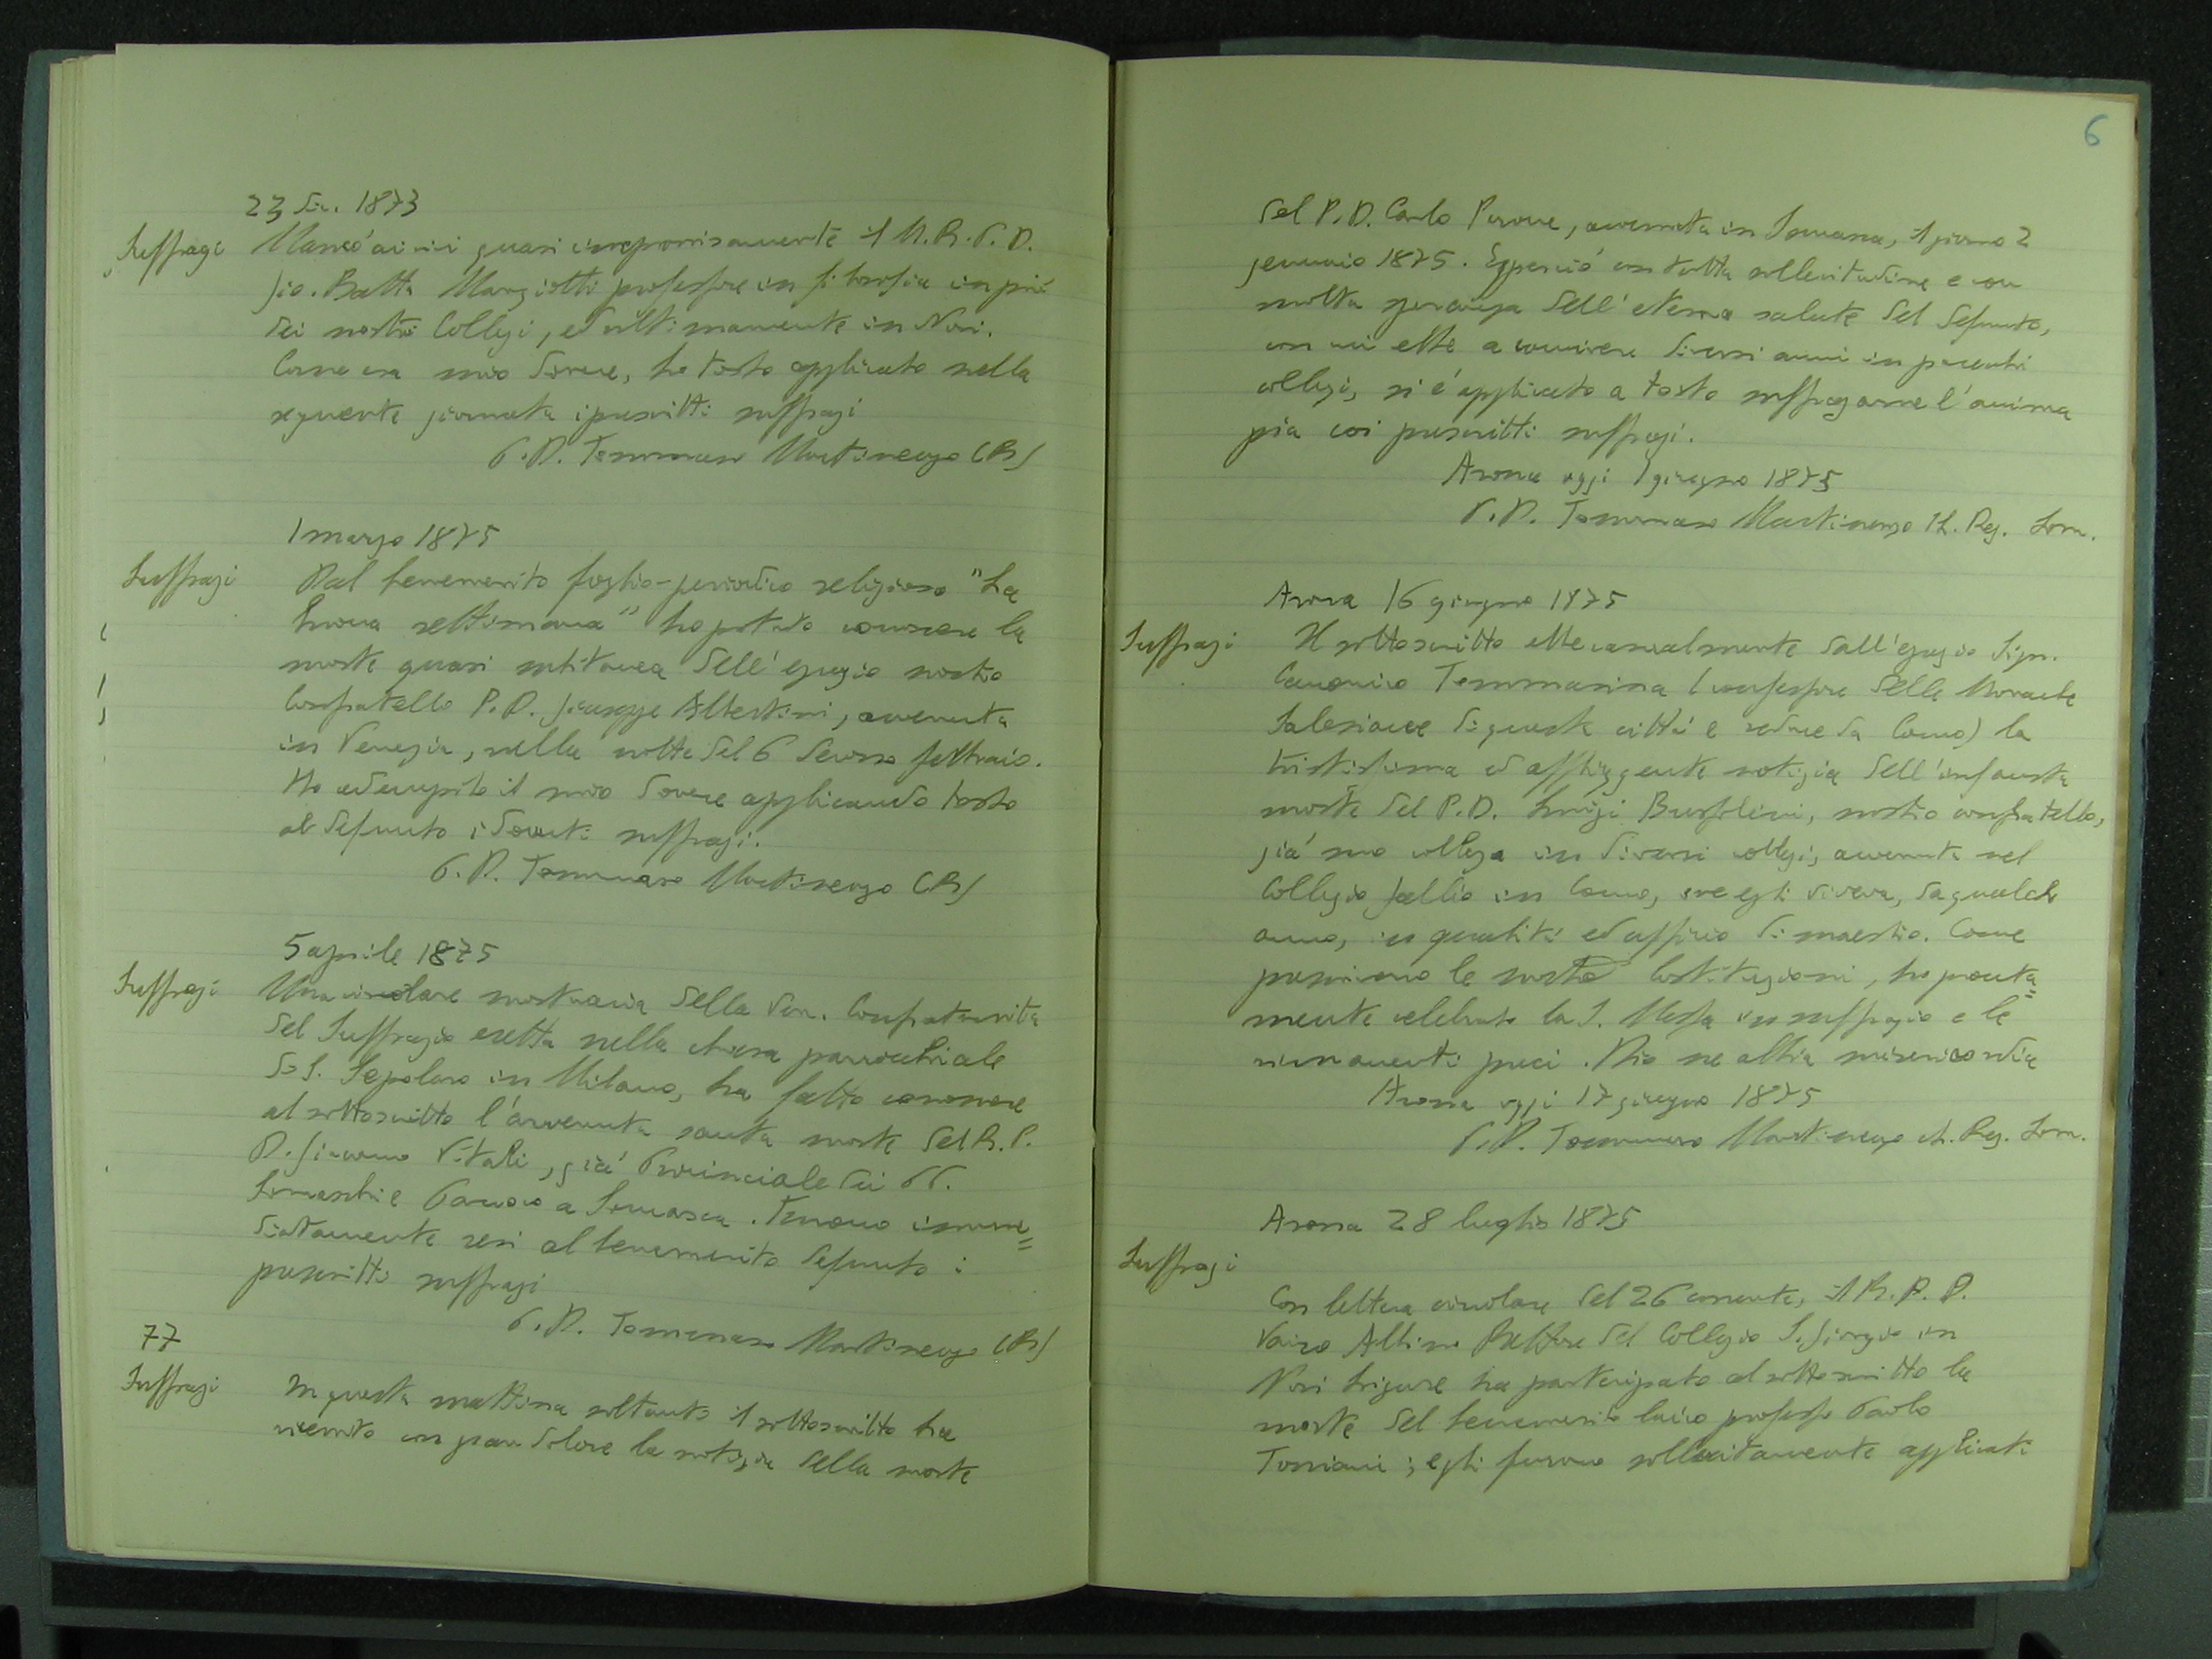 23 Dic. 1873
Suffragi Mancò ai vivi quasi improvvisamente il M. R. P. D.
Gio. Batta Marziotti professore in filosofia in più
dei nostri Collegi, ed ultimamente in Novi.
Come era mio dovere, ho tosto applicato nella
seguente giornata i prescritti suffragi
P. D. Tommaso Martinengo (R)
1 marzo 1875
Suffragi Dal benemerito foglio-periodico religioso "La
buona settimana" ho potuto conoscere la
morte quasi subitanea dell'egregio nostro
Confratello P. D. Giuseppe Albertini, avvenuta
in Venezia, nella notte del 6 decorso febbraio.
Ho adempito il mio dovere applicando tosto
al defunto i dovuti suffragi.
P. D. Tommaso Martinengo (R)
5 aprile 1875
Suffragi Una circolare mortuaria della Ven. Confraternita
del Suffragio eretta nella chiesa parrocchiale
di S. Sepolcro in Milano, ha fatto conoscere
al sottoscritto l'avvenuta santa morte del R. P.
D. Giacomo Vitali, già Provinciale dei PP.
Somaschi e Parroco a Somasca. Furono imme=
diatamente resi al benemerito defunto i
prescritti suffragi
P. D. Tommaso Martinengo (R)
77
Suffragi In questa mattina soltanto il sottoscritto ha
ricevuto con gran dolore la notizia della morte
6
del P. D. Carlo Perone, avvenuta in Somasca, il giorno 2
gennaio 1875. Epperciò con tutta sollecitudine e con
molta speranza dell'eterna salute del defunto,
con cui ebbe a convivere diversi anni in parecchi
collegi, si è applicato a tosto suffragarne l'anima
pia coi prescritti suffragi.
Arona oggi 1 giugno 1875
P. D. Tommaso Martinengo Ch. Reg. Som.
Arona 16 giugno 1875
Suffragi Il sottoscritto ebbe casualmente dall'egregio Sign.
Canonico Tommasina (confessore delle Monache
Salesiane di questa città e reduce da Como) la
tristissima ed affliggente notizia dell'infausta
morte del P. D. Luigi Borfolini, nostro confratello,
già mio collega in diversi collegi, avvenuta nel
Collegio Gallio in Como, ove egli viveva, da qualche
anno, in qualità ed ufficio di maestro. Come
prescrivono le nostre Costituzioni, ho pronta=
mente celebrato la S. Messa in suffragio e le
rimanenti preci. Dio ne abbia misericordia
Arona oggi 17 giugno 1875
P. D. Tommaso Martinengo ch. Reg. Som.
Arona 28 luglio 1875
Suffragi
Con lettera circolare del 26 corrente, il R. P. D.
Vairo Albino Rettore del Collegio S. Giorgio in
Novi Ligure ha partecipato al sottoscritto la
morte del benemerito laico professo Paolo
Torriani; egli furono sollecitamente applicati